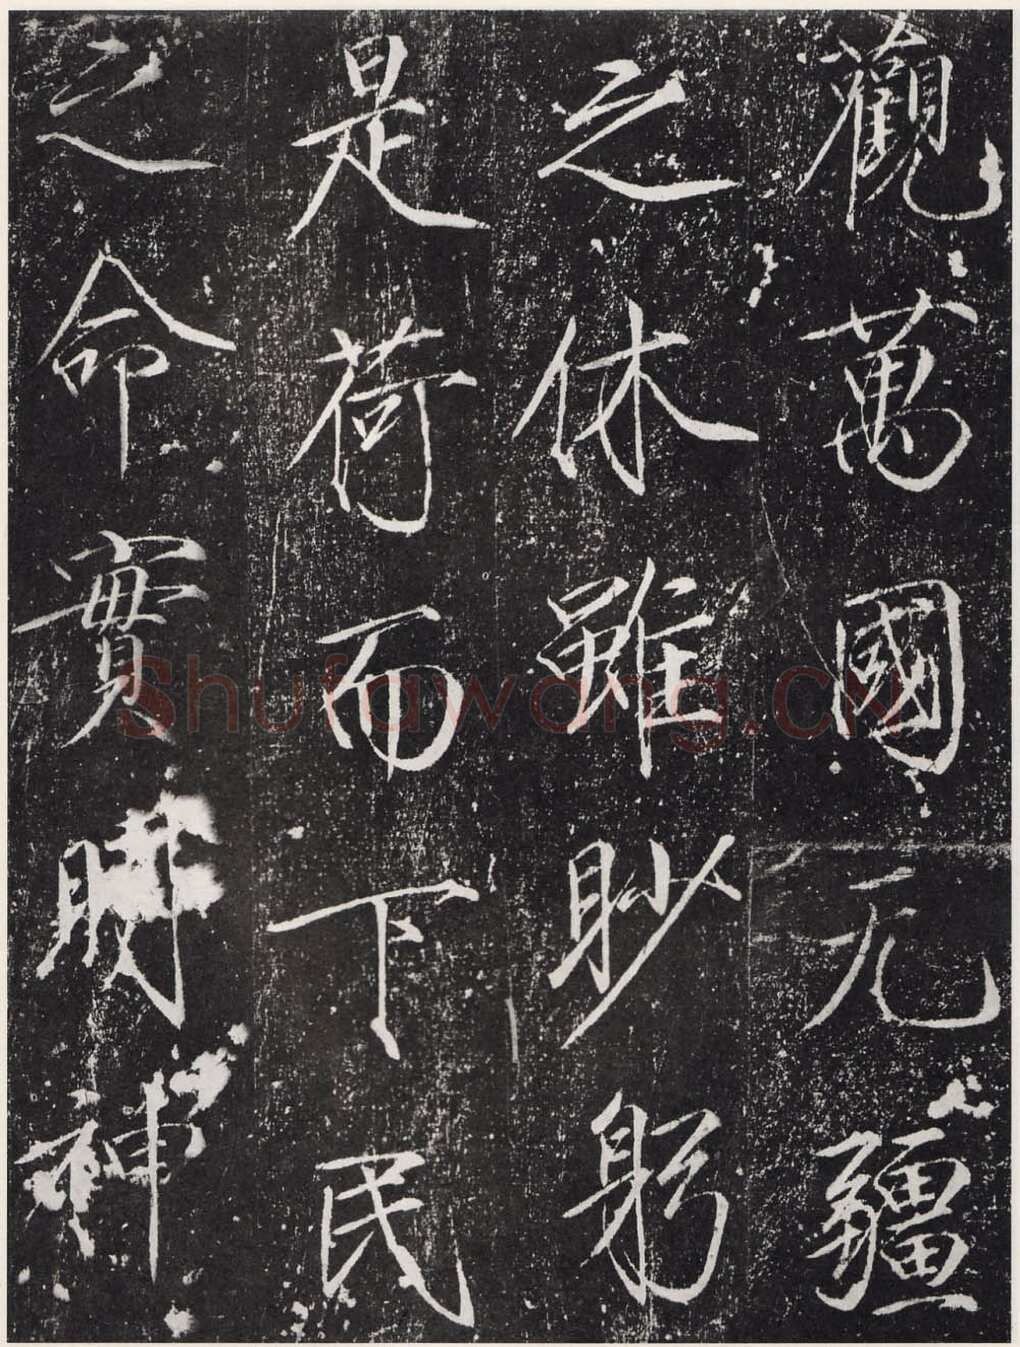 觀萬國元疆
之休雖眇躬
是荷而下民
之命實賜神
Shufawang.CN